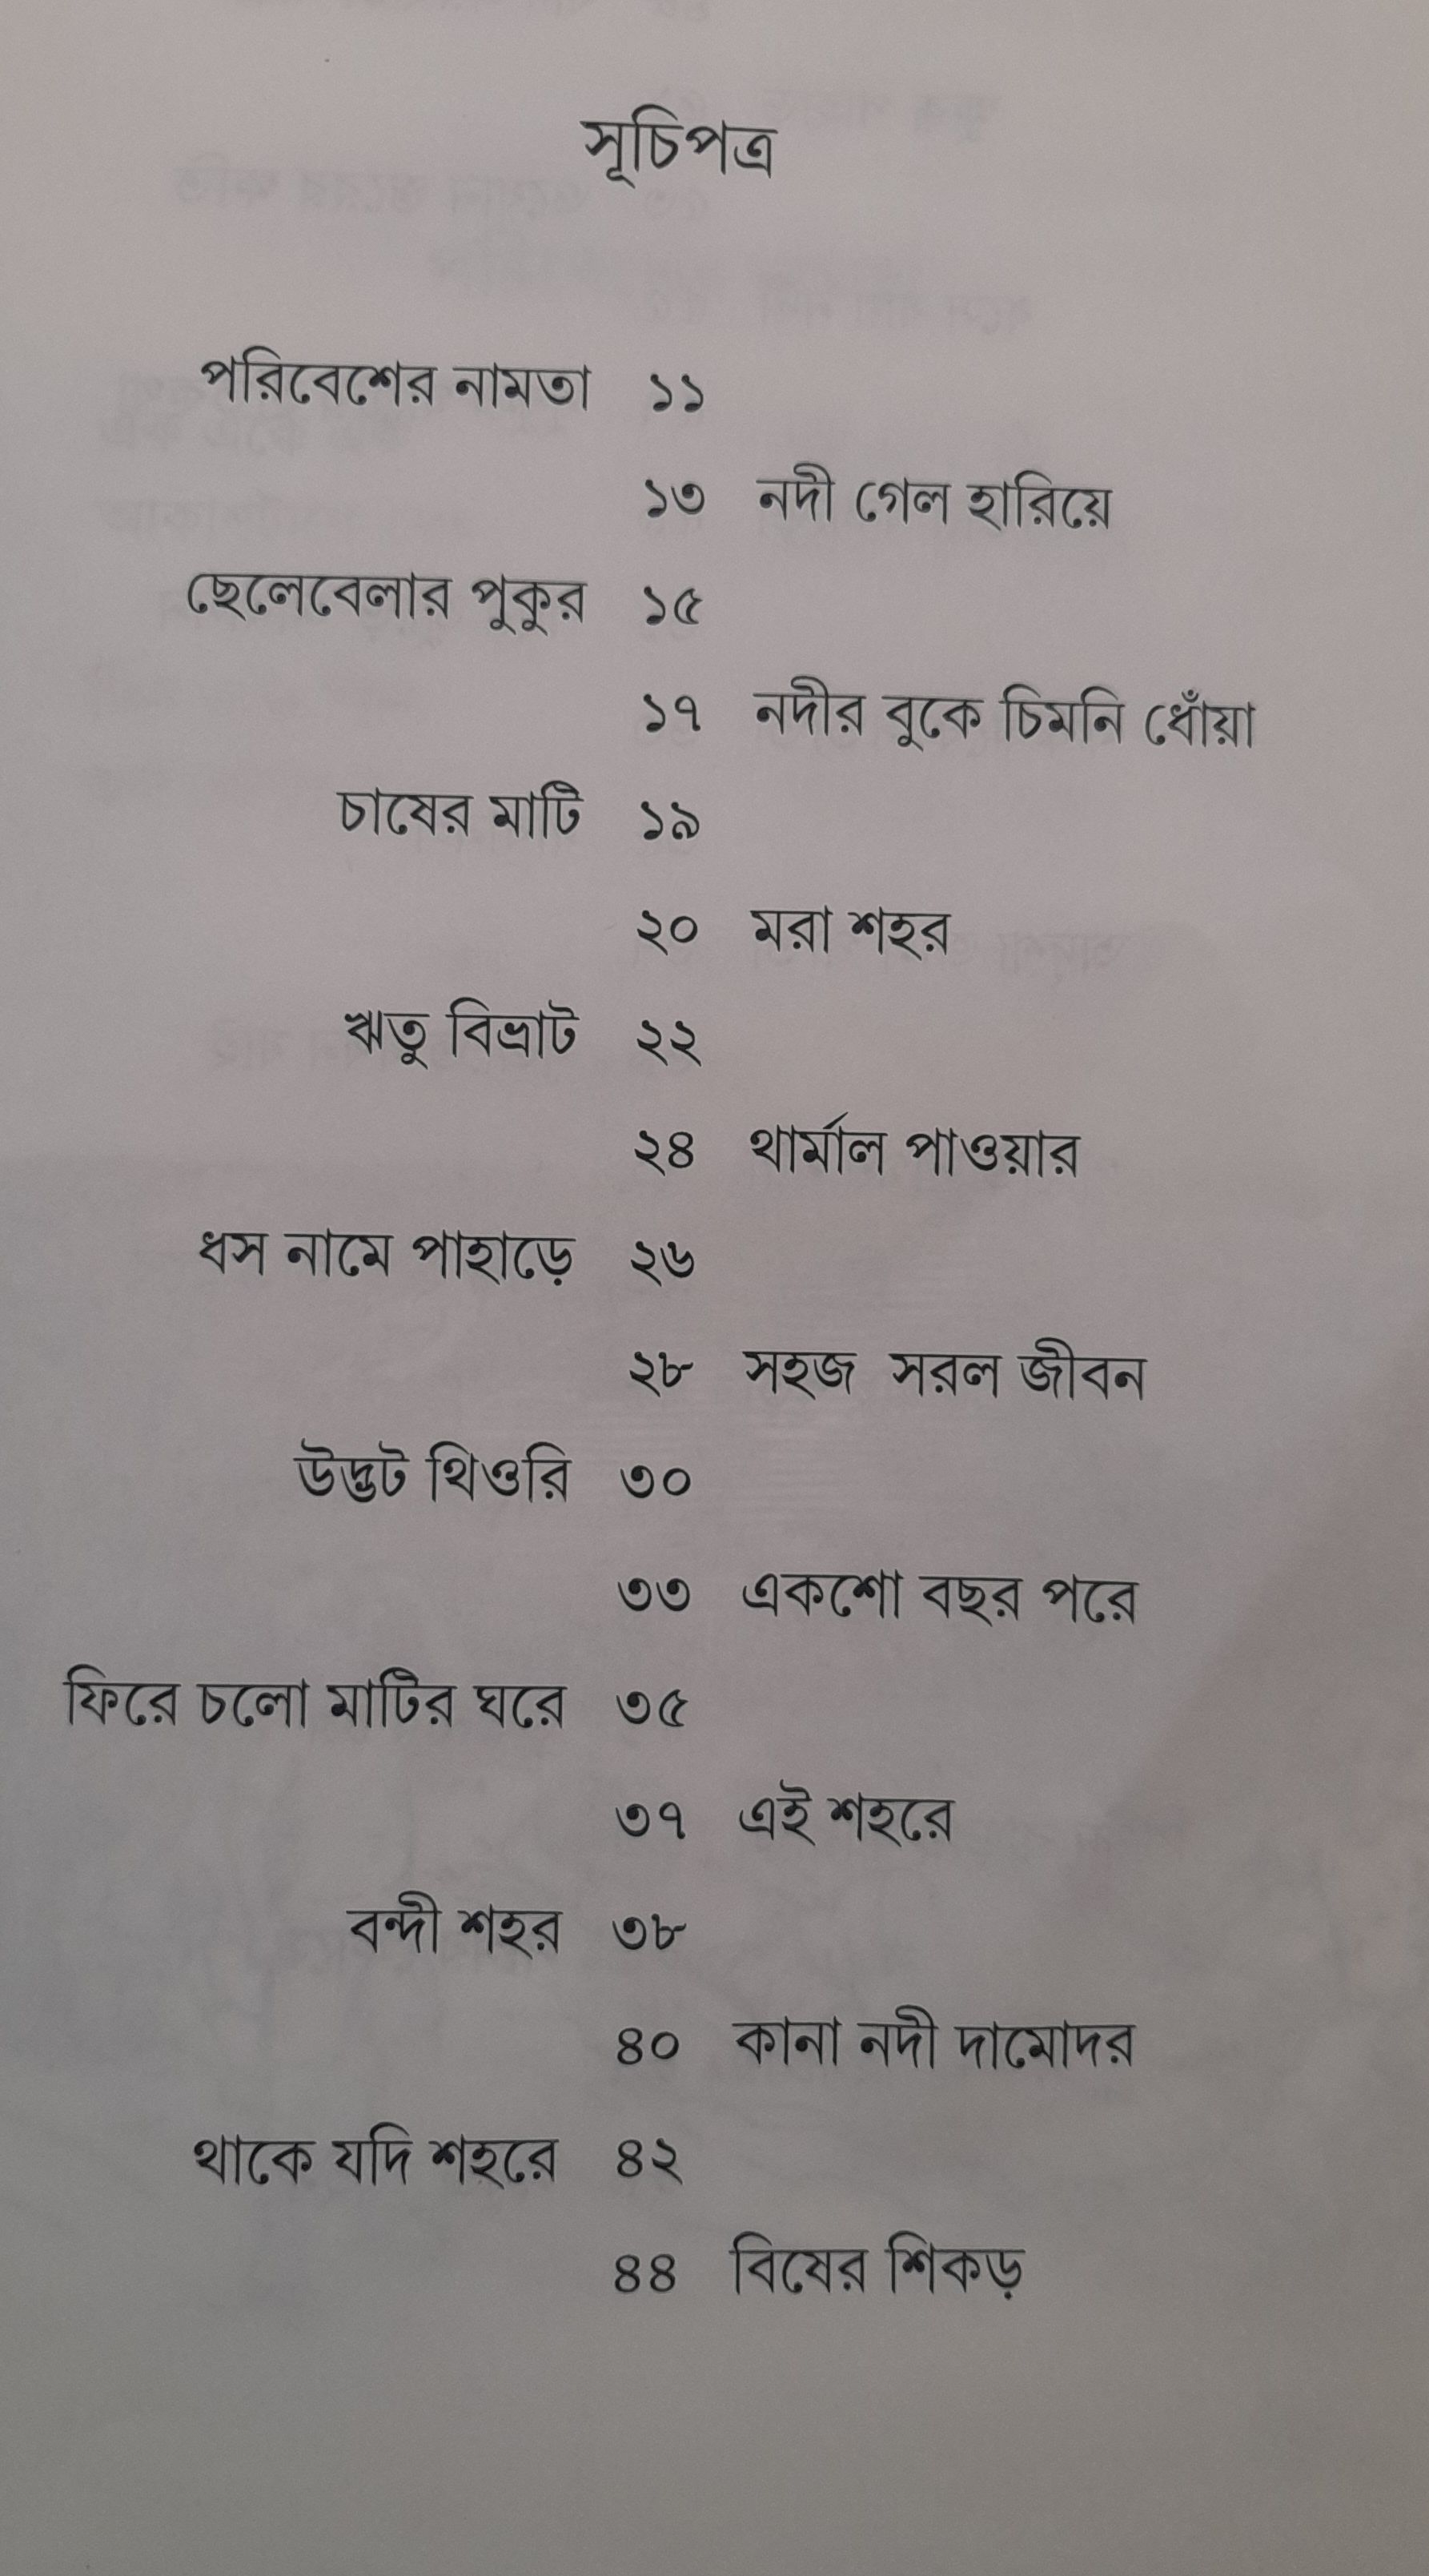 সূচিপত্র
পরিবেশের নামতা ১১
১৩ নদী গেল হারিয়ে
ছেলেবেলার পুকুর ১৫
১৭ নদীর বুকে চিমনি ধোঁয়া
চাষের মাটি ১৯
২০ মরা শহর
ঋতু বিভ্রাট ২২
২৪ থার্মাল পাওয়ার
ধস নামে পাহাড়ে ২৬
২৮ সহজ সরল জীবন
উদ্ভট থিওরি ৩০
৩৩ একশো বছর পরে
ফিরে চলো মাটির ঘরে ৩৫
৩৭ এই শহরে
বন্দী শহর ৩৮
৪০ কানা নদী দামোদর
থাকে যদি শহরে ৪২
৪৪ বিষের শিকড়